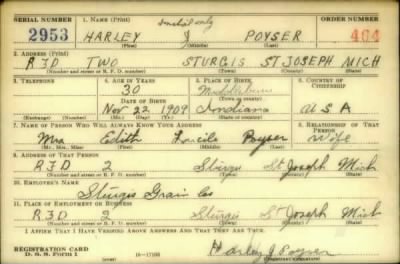 SERIAL NUMBER 1. NAME (Print) Initial only ORDER NUMBER
2953 HARLEY J POYSER 404
(First) (Middle) (Last)
2. ADDRESS (Print)
R3D TWO STURGIS ST JOSEPH MICH
(Number and street or R. F. D. number) (Town) (County) (State)
3. TELEPHONE 4. AGE IN YEARS 5. PLACE OF BIRTH 6. COUNTRY OF CITIZENSHIP
30 Middlebury
DATE OF BIRTH (Town or county)
Nov 22 1909 Indiana USA
(Exchange) (No.) (Mo.) (Day) (Yr.) (State or country)
7. NAME OF PERSON WHO WILL ALWAYS KNOW YOUR ADDRESS 8. RELATIONSHIP OF THAT PERSON
Mrs Edith Lucile Poyser Wife
(Mr., Mrs., Miss) (First) (Middle) (Last)
9. ADDRESS OF THAT PERSON
R3D 2 Sturgis St Joseph Mich
(Number and street or R. F. D. number) (Town) (County) (State)
10. EMPLOYER'S NAME
Sturgis Grain Co
11. PLACE OF EMPLOYMENT OR BUSINESS
R3D 2 Sturgis St Joseph Mich
(Number and street or R. F. D. number) (Town) (County) (State)
I AFFIRM THAT I HAVE VERIFIED ABOVE ANSWERS AND THAT THEY ARE TRUE.
REGISTRATION CARD
D. S. S. Form 1 Harley J Poyser